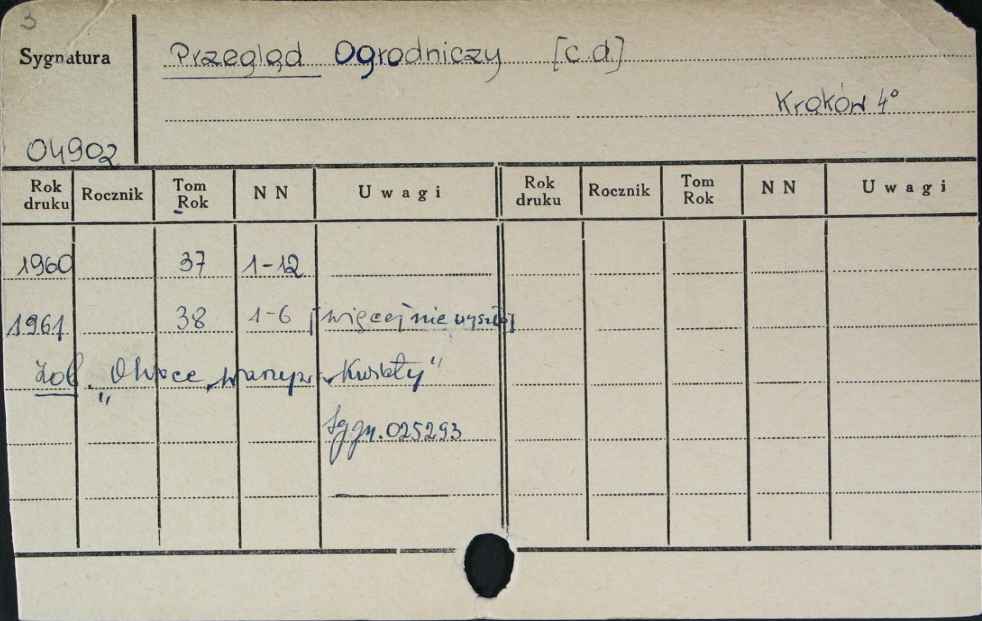 3
Sygnatura
Przegląd Ogrodniczy [c.d]
Kraków 4°
04902
Rok druku Rocznik Tom Rok N N Uwagi Rok druku Rocznik Tom Rok N N Uwagi
1960 37 1-12
1961 38 1-6 [więcej nie wyszło]
Zob. "Owoce, warzywa, Kwiaty"
Sygn. 025293